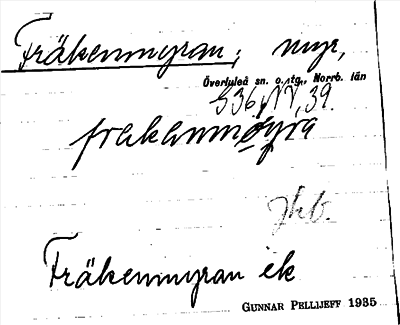 Fräkenmyran; myr,
Överluleå sn. o. tg., Norrb. län
S36, NV, 39.
Fräkenmyran ek
GUNNAR PELLIJEFF 1935